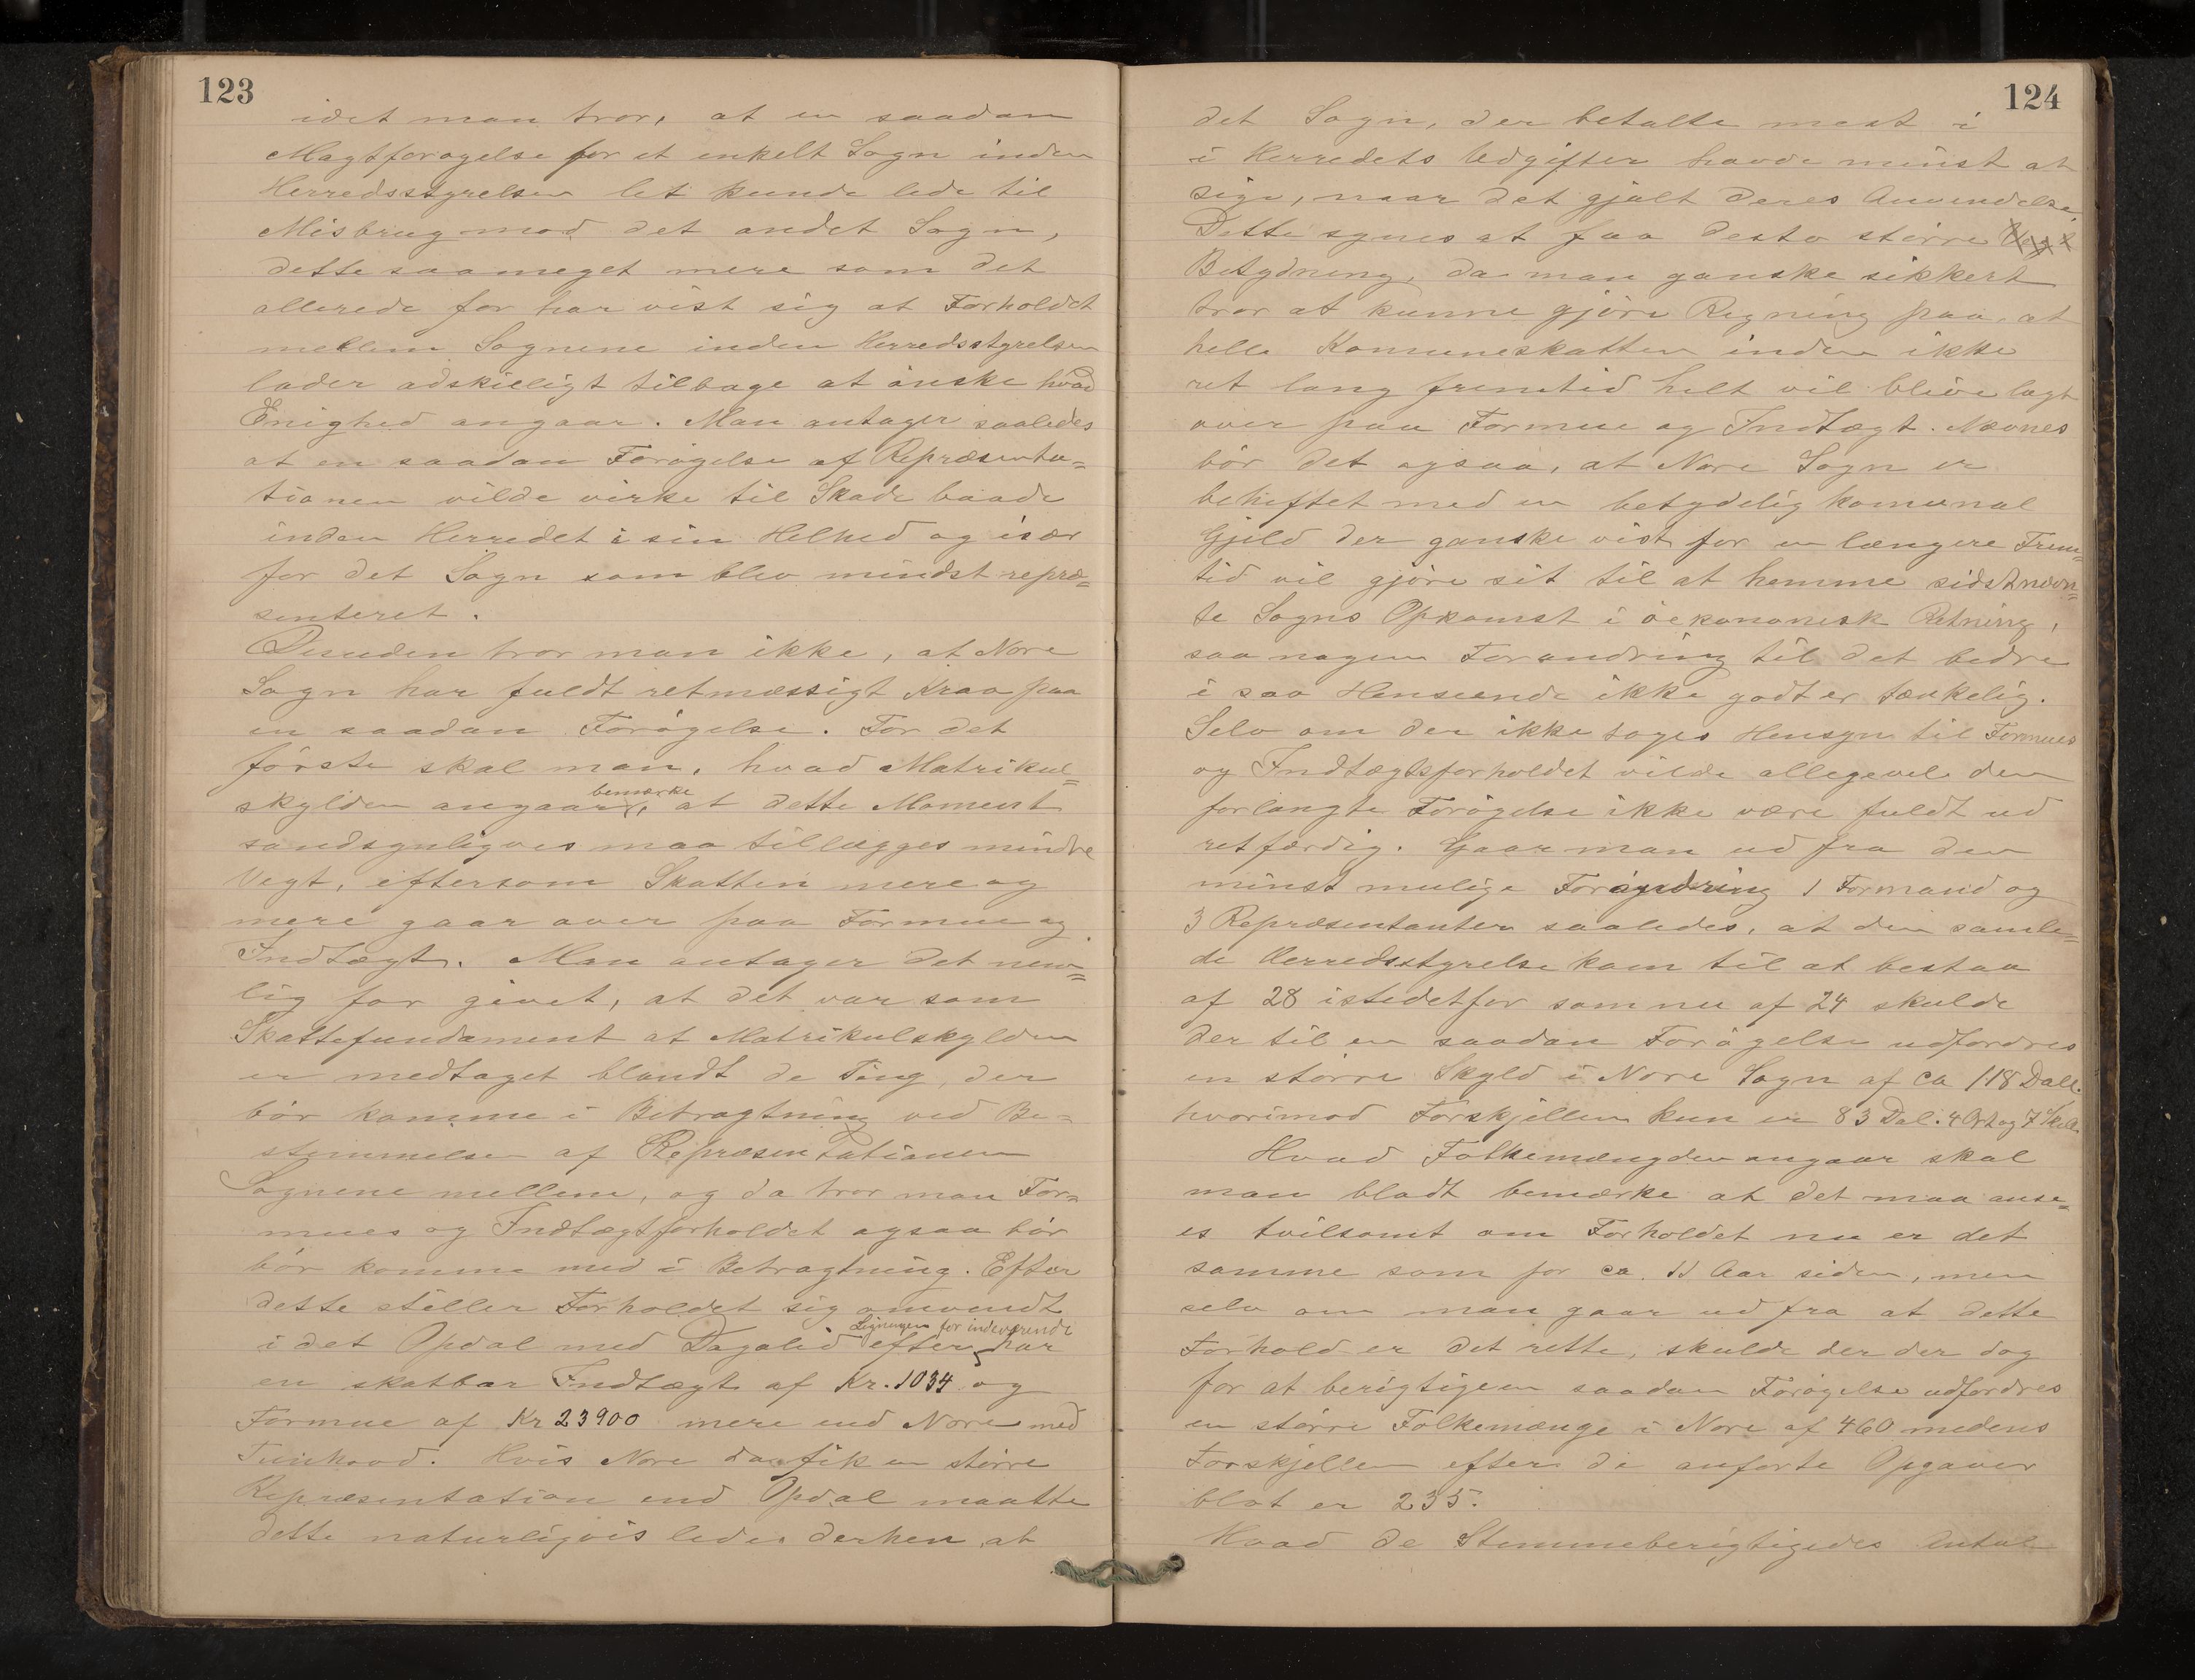 123
idet man tror, at en saadan
Magtforøgelse for et enkelt Sogn inden
Herredsstyrelsen let kunde lede til
Misbrug mod det andet Sogn,
dette saameget mere som det
allerede før har vist sig at Forholdet
mellem Sognene inden Herredsstyrelsen
lader adskilligt tilbage at ønske hvad
Enighed angaar. Man antager saaledes
at en saadan Forøgelse af Repræsenta=
tionen vilde virke til Skade baade
inden Herredet i sin Helhed og især
for det Sogn som blev mindst repræ=
senteret.
Desuden tror man ikke, at Nore
Sogn har fuldt retmæssigt Krav paa
en saadan Forøgelse. For det
første skal man, hvad Matrikul=
skylden angaar, bemærke at dette Moment
sandsynligvis maa tillægges mindre
Vegt, eftersom Skatten mere og
mere gaar over paa Formue og
Indtægt. Man antager det nem=
lig for givet, at det var som
Skattefundament at Matrikulskylden
er medtaget blandt de Ting, der
bør komme i Betragtning ved Be=
stemmelsen af Repræsentationen
Sognene mellem, og da tror man For=
mues og Indtægtforholdet ogsaa bør
bør komme med i Betragtning. Efter
dette stiller Forholdet sig omvendt
i det Opdal med Dagalid efter Ligningen for indeværende har
en skatbar Indtægt af Kr. 1034 og
Formue af Kr 23900 mere end Nore med
Tunhovd. Hvis Nore da fik en større
Repræsentation end Opdal maatte
dette naturligvis lede derhen at
124
det Sogn, der betalte mest i
i Herredets Udgifter havde minst at
sige, naar det gjalt deres Anvendelse
Dette synes at faa desto større Vegt
Betydning, da man ganske sikkert
tror at kunne gjøre Regning paa, at
hele Komuneskatten inden ikke
ret lang fremtid helt vil blive lagt
over paa Formue og Indtægt. Nævnes
bør det ogsaa, at Nore Sogn er
beheftet med en betydelig komunal
Gjeld der ganske vist for en længere Frem=
tid vil gjøre sit til at hemme sidstnævn=
te Sogns Opkomst i øekonomisk Retning,
saa nogen Forandring til det bedre
i saa Henseende ikke godt er tænkelig.
Selv om der ikke toges Hensyn til Formues
og Indtægtsforholdet vilde allegevel den
forlangte Forøgelse ikke være fuldt ud
retfærdig. Gaar man ud fra den
minst mulige Forandring 1 Formand og
3 Repræsentanter saaledes, at den samle=
de Herredsstyrelse kom til at bestaa
af 28 istedetfor som nu af 24 skulde
der til en saadan Forøgelse udfordres
en større Skyld i Nore Sogn af ca 118 Dall.
hvorimod Forskjellen kun er 83 Dal. 4 Ort og 7 Skill.
Hvad Folkemængden angaar skal
man bladt bemærke at det maa anse=
es tvilsomt om Forholdet nu er det
samme som for ca. 11 Aar siden, men
selv om man gaar ud fra at dette
Forhold er det rette, skulde der der dog
for at berigtigeen saadan Forøgelse udfordres
en større Folkemænge i Nore af 460 medens
Forskjellen efter de anførte Opgaver
blot er 235.
Hvad de Stemmeberigtigedes Antal